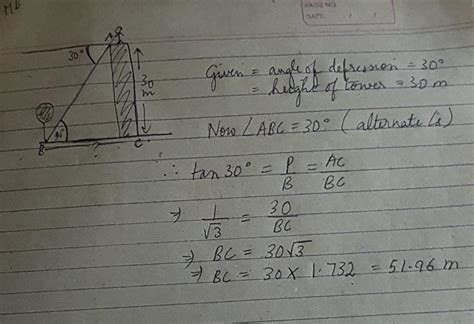 MB
PAGE NO.
DATE:
A
30°
30 m
30°
B
?
C
Given = angle of depression = 30°
= height of tower = 30 m
Now ∠ABC = 30° (alternate ∠s)
∴ tan 30° = P/B = AC/BC
⇒ 1/√3 = 30/BC
⇒ BC = 30√3
⇒ BC = 30 × 1.732 = 51.96 m